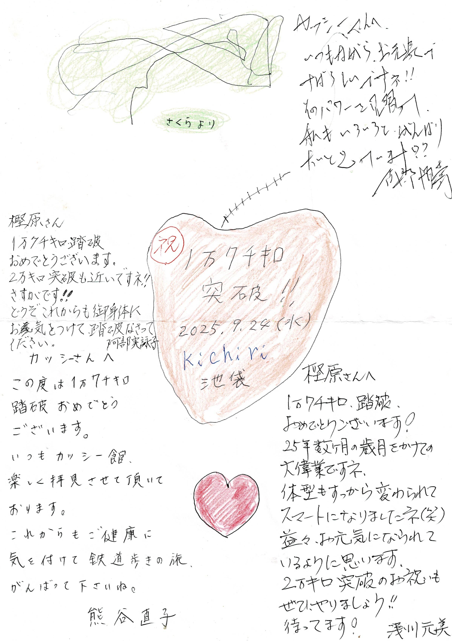 さくらより
カシハラさんへ
いつもながら、お元気で
すばらしいですネ!!
そのパワーを見習って、
私もいろいろと、がんばり
たいと思いまーす!?
樫原さん
1万7千キロ踏破
おめでとうございます。
2万キロ突破も近いですネ!!
さすがです!!
どうぞこれからも御身体に
お気をつけて踏破なさって
ください。
カッシーさんへ
この度は1万7千キロ
踏破 おめでとう
ございます。
いつもカッシー館、
楽しく拝見させて頂いて
おります。
これからもご健康に
気を付けて鉄道歩きの旅、
がんばって下さいね。
熊谷直子
祝
1万7千キロ
突破!!
2025.9.24(水)
Kichiri
池袋
樫原さんへ
1万7千キロ、踏破、
おめでとうございます!
25年数ヶ月の歳月をかけての
大偉業ですネ、
体型もすっかり変わられて
スマートになりましたネ(笑)
益々、お元気になられて
いるように思います、
2万キロ突破のお祝いも
ぜひやりましょう!!
待ってます! 浅川元美